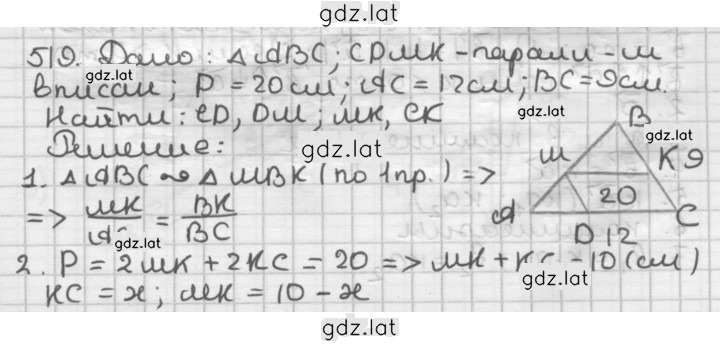 gdz.lat
519. Дано: △ABC; CDMK - паралл-м
gdz.lat
вписан; P = 20см; AC = 12см; BC = 9см.
Найти: CD, DM; MK, CK
gdz.lat
Решение:
gdz.lat
1. △ABC ∾ △MBK (по 1пр.) =>
=> MK/AC = BK/BC
gdz.lat
2. P = 2MK + 2KC = 20 => MK + KC = 10 (см)
KC = x; MK = 10 - x
B
M
K 9
20
A
C
D 12
gdz.lat